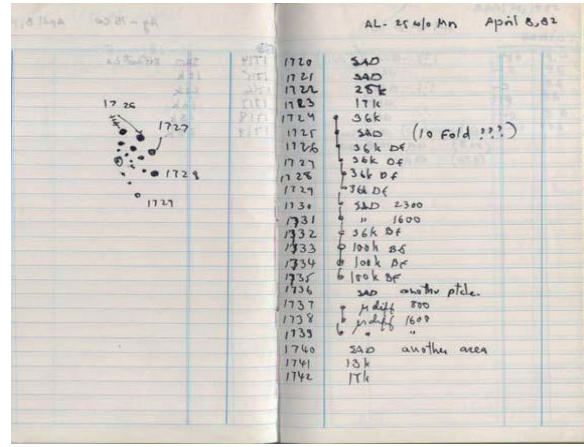 17 26
1727
1728
1729
AL-25 w/o Mn April 8, 82
1720 SAD
1721 SAD
1722 25k
1723 17k
1724 36k
1725 SAD (10 Fold ???)
1726 36k Df
1727 36k Df
1728 36k Df
1729 36k Df
1730 SAD 2300
1731 " 1600
1732 36k Bf
1733 100k Bf
1734 100k Bf
1735 100k Bf
1736 SAD another ptcle.
1737 μdiff 800
1738 μdiff 1600
1739 " "
1740 SAD another area
1741 13k
1742 17k